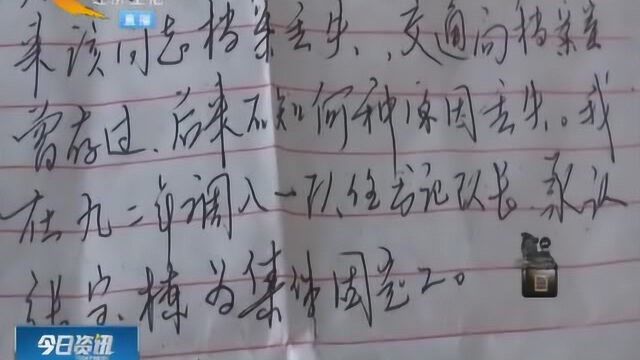 直播
来该同志档案丢失,交通局档案室
曾存过,后来不知何种原因丢失。我
在九二年调入一队任书记队长,承认
张宝栋为集体固定工。
今日资讯